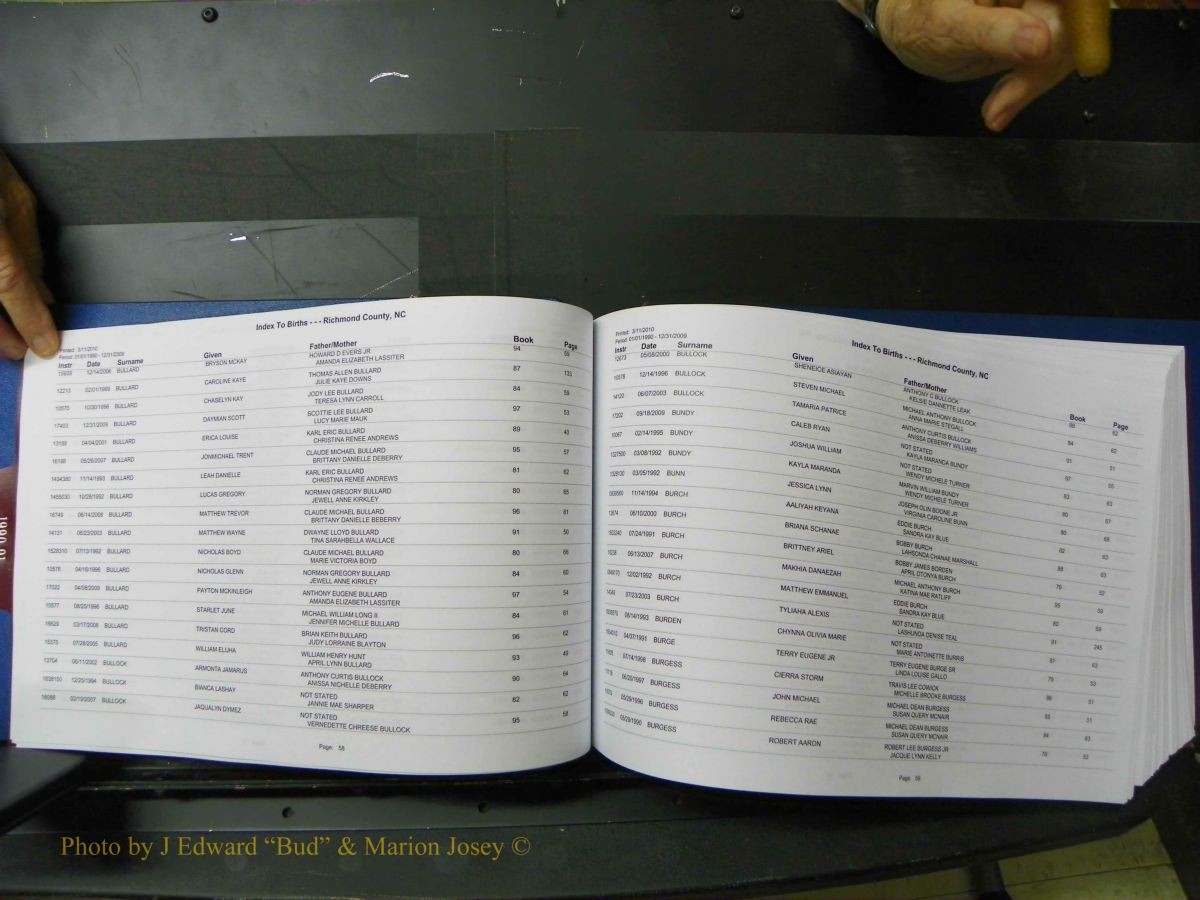 Index To Births - - - Richmond County, NC
Printed: 3/11/2010
Period: 01/01/1990 - 12/31/2009
Instr Date Surname Given Father/Mother Book Page
12/14/2006 BULLARD BRYSON MCKAY HOWARD D EVERS JR 94 59
AMANDA ELIZABETH LASSITER
12213 02/01/1999 BULLARD CAROLINE KAYE THOMAS ALLEN BULLARD 87 133
JULIE KAYE DOWNS
10575 10/30/1996 BULLARD CHASELYN KAY JODY LEE BULLARD 84 59
TERESA LYNN CARROLL
17403 12/31/2009 BULLARD DAYMIAN SCOTT SCOTTIE LEE BULLARD 97 53
LUCY MARIE MAUK
13159 04/04/2001 BULLARD ERICA LOUISE KARL ERIC BULLARD 89 43
CHRISTINA RENEE ANDREWS
16198 05/26/2007 BULLARD JONMICHAEL TRENT CLAUDE MICHAEL BULLARD 95 57
BRITTANY DANIELLE DEBERRY
1404380 11/14/1993 BULLARD LEAH DANIELLE KARL ERIC BULLARD 81 62
CHRISTINA RENEE ANDREWS
1456030 10/28/1992 BULLARD LUCAS GREGORY NORMAN GREGORY BULLARD 80 65
JEWELL ANNE KIRKLEY
16749 06/14/2008 BULLARD MATTHEW TREVOR CLAUDE MICHAEL BULLARD 96 61
BRITTANY DANIELLE BEBERRY
14131 06/23/2003 BULLARD MATTHEW WAYNE DWAYNE LLOYD BULLARD 91 50
TINA SARAHBELLA WALLACE
1528310 07/13/1992 BULLARD NICHOLAS BOYD CLAUDE MICHAEL BULLARD 80 66
MARIE VICTORIA BOYD
10576 04/16/1996 BULLARD NICHOLAS GLENN NORMAN GREGORY BULLARD 84 60
JEWELL ANNE KIRKLEY
17022 04/08/2009 BULLARD PAYTON MCKINLEIGH ANTHONY EUGENE BULLARD 97 54
AMANDA ELIZABETH LASSITER
10577 08/25/1996 BULLARD STARLET JUNE MICHAEL WILLIAM LONG II 84 61
JENNIFER MICHELLE BULLARD
16629 03/17/2008 BULLARD TRISTAN CORD BRIAN KEITH BULLARD 96 62
JUDY LORRAINE BLAYTON
15375 07/28/2005 BULLARD WILLIAM ELIJHA WILLIAM HENRY HUNT 93 49
APRIL LYNN BULLARD
13704 06/11/2002 BULLOCK ARMONTA JAMARUS ANTHONY CURTIS BULLOCK 90 64
ANISSA NICHELLE DEBERRY
1638100 12/25/1994 BULLOCK BIANCA LASHAY NOT STATED 82 62
JANNIE MAE SHARPER
16088 02/19/2007 BULLOCK JAQUALYN DYMEZ NOT STATED 95 58
VERNEDETTE CHREESE BULLOCK
Page: 58
Index To Births - - - Richmond County, NC
Printed: 3/11/2010
Period: 01/01/1990 - 12/31/2009
Instr Date Surname Given Father/Mother Book Page
12673 05/08/2000 BULLOCK SHENEICE ASIAYAN ANTHONY C BULLOCK 88 62
KELSIE DANNETTE LEAK
10578 12/14/1996 BULLOCK STEVEN MICHAEL MICHAEL ANTHONY BULLOCK 84 62
ANNA MARIE STEGALL
14120 06/07/2003 BULLOCK TAMARIA PATRICE ANTHONY CURTIS BULLOCK 91 51
ANISSA DEBERRY WILLIAMS
17202 09/18/2009 BUNDY CALEB RYAN NOT STATED 97 55
KAYLA MARANDA BUNDY
10067 02/14/1995 BUNDY JOSHUA WILLIAM NOT STATED 83 63
WENDY MICHELE TURNER
1327500 03/08/1992 BUNDY KAYLA MARANDA MARVIN WILLIAM BUNDY 80 67
WENDY MICHELE TURNER
1328100 03/05/1992 BUNN JESSICA LYNN JOSEPH OLIN BOONE JR 80 68
VIRGINIA CAROLINE BUNN
11/14/1994 BURCH AALIYAH KEYANA EDDIE BURCH 82 63
SANDRA KAY BLUE
12674 06/10/2000 BURCH BRIANA SCHANAE BOBBY BURCH 88 63
LAHSONDA CHANAE MARSHALL
07/24/1991 BURCH BRITTNEY ARIEL BOBBY JAMES BORDEN 79 52
APRIL DTONYA BURCH
09/13/2007 BURCH MAKHIA DANAEZAH MICHAEL ANTHONY BURCH 95 59
KATINA MAE RATLIFF
12/02/1992 BURCH MATTHEW EMMANUEL EDDIE BURCH 80 69
SANDRA KAY BLUE
07/23/2003 BURCH TYLIAHA ALEXIS NOT STATED 91 245
LASHUNDA DENISE TEAL
08/14/1993 BURDEN CHYNNA OLIVIA MARIE NOT STATED 81 63
MARIE ANTOINETTE BURRIS
04/07/1991 BURGE TERRY EUGENE JR TERRY EUGENE BURGE SR 79 53
LINDA LOUISE GALLO
07/14/1998 BURGESS CIERRA STORM TRAVIS LEE COWICK 86 51
MICHELLE BROOKE BURGESS
BURGESS JOHN MICHAEL MICHAEL DEAN BURGESS 85 51
SUSAN QUERY MCNAIR
05/29/1996 BURGESS REBECCA RAE MICHAEL DEAN BURGESS 84 63
SUSAN QUERY MCNAIR
05/29/1990 BURGESS ROBERT AARON ROBERT LEE BURGESS JR 78 53
JACQUE LYNN KELLY
Page: 59
Photo by J Edward “Bud” & Marion Josey ©